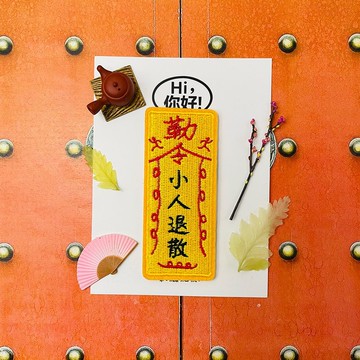 Hi,
你好!
勅
令
小
人
退
散